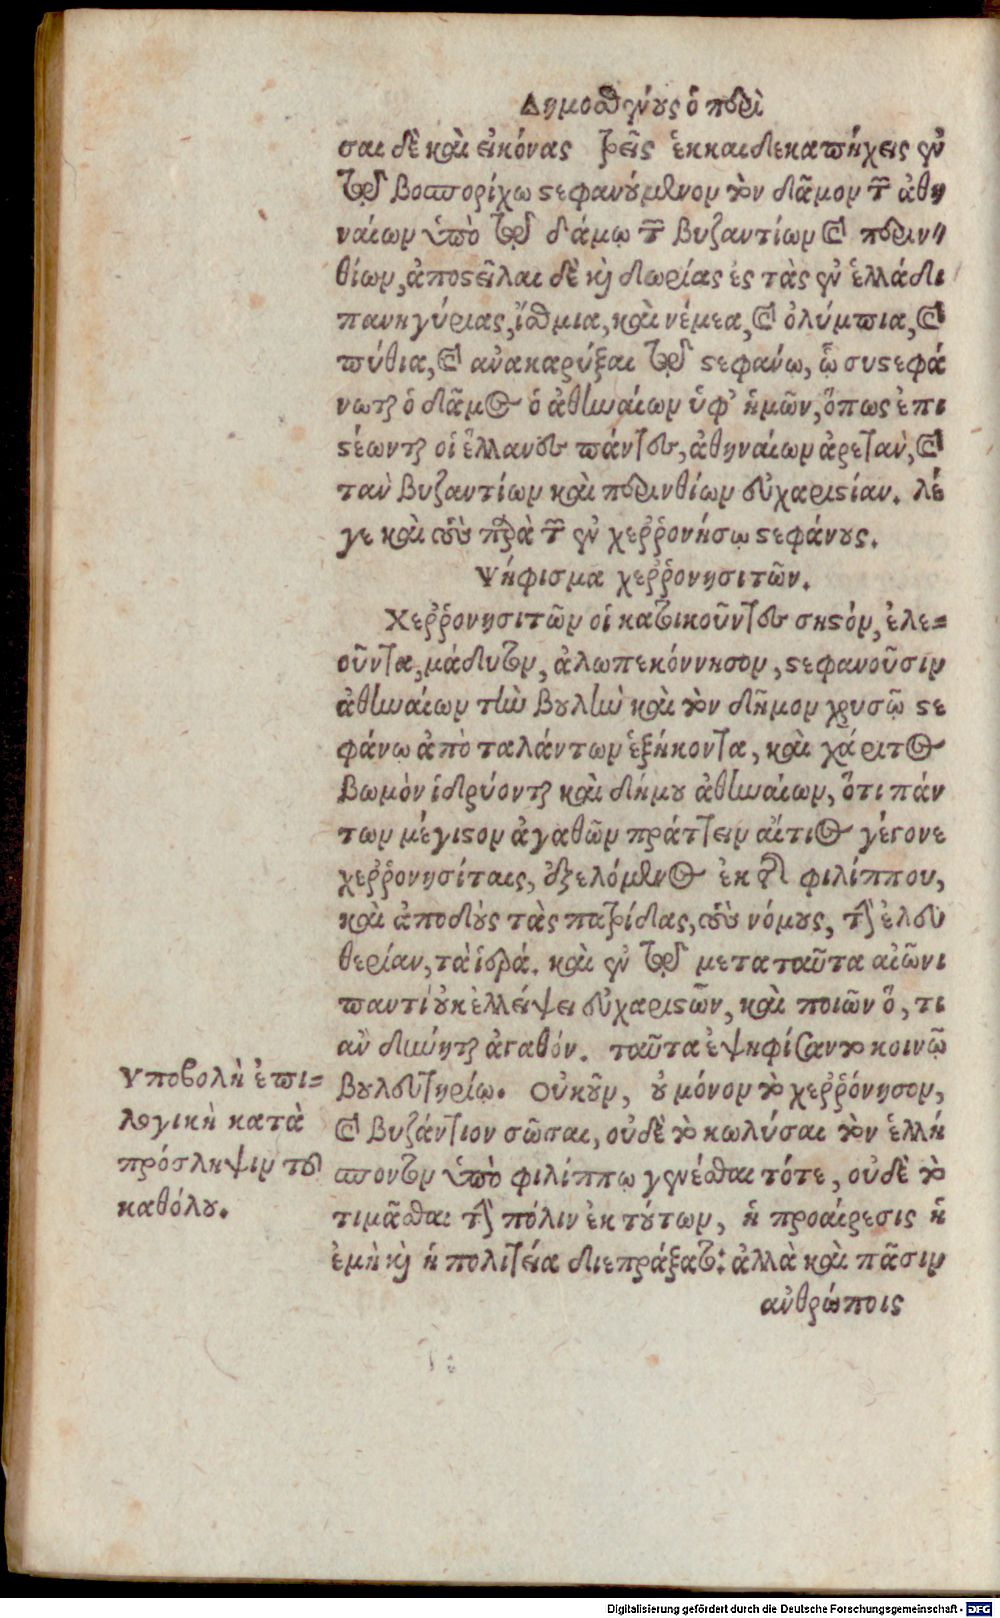 Δημοσθένους ὁ περὶ
σαι δὲ καὶ εἰκόνας τρεῖς ἑκκαιδεκαπήχεις ἐν
τῷ Βοσπορίχω στεφανούμενον τὸν δᾶμον τῶν ἀθη
ναίων ὑπὸ τῷ δάμῳ τῶν Βυζαντίων καὶ περιν-
θίων, ἀποστεῖλαι δὲ καὶ δωρίας ἐς τὰς ἐν ἑλλάδι
πανηγύριας, ἴσθμια, καὶ νέμεα, καὶ ὀλύμπια, καὶ
πύθια, καὶ ἀνακαρύξαι τῷ στεφάνῳ, ᾧ συστεφά
νωται ὁ δᾶμος ὁ ἀθηναίων ὑφ' ἡμῶν, ὅπως ἐπι
στέωνται οἱ ἕλλανες πάντες, ἀθηναίων ἀρετὰν, καὶ
τὰν Βυζαντίων καὶ περινθίων εὐχαριστίαν. λέ
γε καὶ τοὺς παρὰ τῶν ἐν χερῤῥονήσῳ στεφάνους.
Ψήφισμα χερῤῥονησιτῶν.
Χερῤῥονησιτῶν οἱ κατοικοῦντες σηστόν, ἐλε-
οῦντα, μάδυτον, ἀλωπεκόννησον, στεφανοῦσιν
ἀθηναίων τὴν βουλὴν καὶ τὸν δῆμον χρυσῷ στε
φάνῳ ἀπὸ ταλάντων ἑξήκοντα, καὶ χάριτος
Βωμὸν ἱδρύονται καὶ δήμου ἀθηναίων, ὅτι πάν
των μέγιστον ἀγαθῶν πράττειν αἴτιος γέγονε
χερῤῥονησίταις, ἐξελόμενος ἐκ τῆς φιλίππου,
καὶ ἀποδοὺς τὰς πατρίδας, τοὺς νόμους, τὴν ἐλευ
θερίαν, τὰ ἱερά. καὶ ἐν τῷ μετα ταῦτα αἰῶνι
παντὶ οὐκ ἐλλείψει εὐχαριστῶν, καὶ ποιῶν ὅ, τι
ἂν δύνηται ἀγαθόν. ταῦτα ἐψηφίσαντο κοινῷ
βουλευτηρίῳ. Οὐκοῦν, οὐ μόνον τὸ χερῤῥόνησον,
καὶ Βυζάντιον σῶσαι, οὐδὲ τὸ κωλύσαι τὸν ἑλλή
σποντον ὑπὸ φιλίππῳ γενέσθαι τότε, οὐδὲ τὸ
τιμᾶσθαι τὴν πόλιν ἐκ τούτων, ἡ προαίρεσις ἡ
ἐμὴ καὶ ἡ πολιτεία διεπράξατο: ἀλλὰ καὶ πᾶσιν
ἀνθρώποις
Υποβολὴ ἐπι-
λογικὴ κατὰ
πρόσληψιν τοῦ
καθόλου.
Digitalisierung gefördert durch die Deutsche Forschungsgemeinschaft - DFG